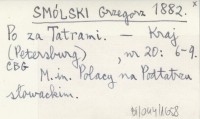 SMÓLSKI Grzegorz 1882. x
Po za Tatrami. – Kraj
(Petersburg) , nr 20: 6-9.
CBG
M.in. Polacy na Podtatrzu
słowackim.